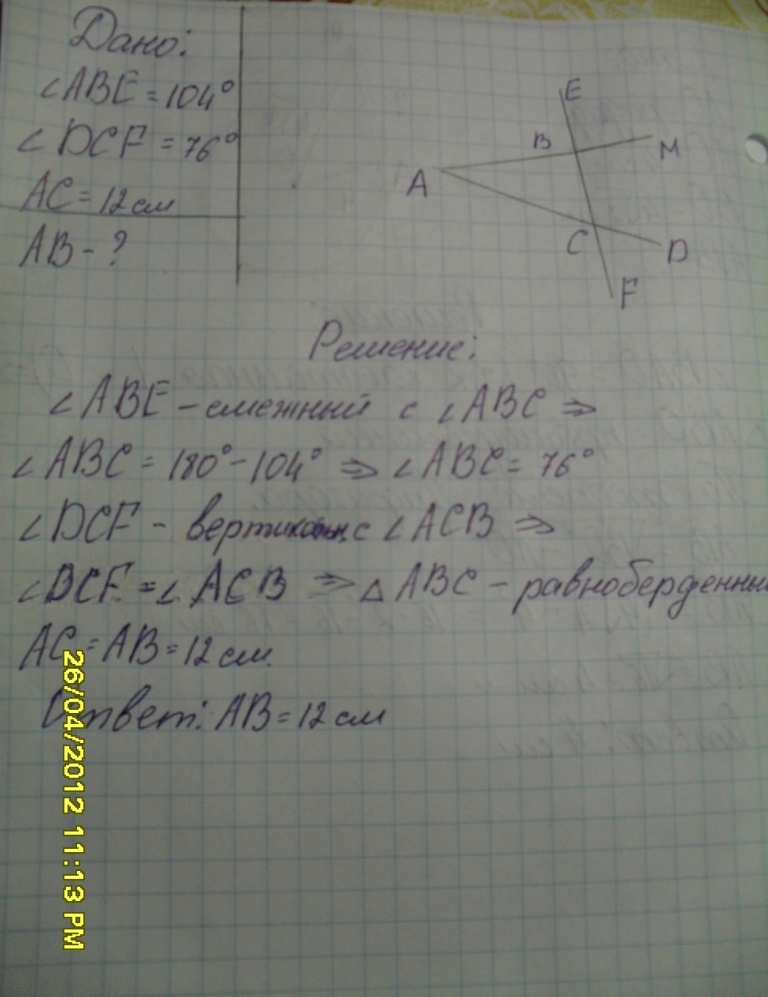 Дано:
∠ABE = 104°
∠DCF = 76°
AC = 12 см
AB - ?
E
B
M
A
C
D
F
Решение:
∠ABE - смежный с ∠ABC ⇒
∠ABC = 180° - 104° ⇒ ∠ABC = 76°
∠DCF - с ∠ACB ⇒
∠DCF = ∠ACB ⇒ △ABC - равноберденный
AC = AB = 12 см.
Ответ: AB = 12 см
26/04/2012 11:13 PM